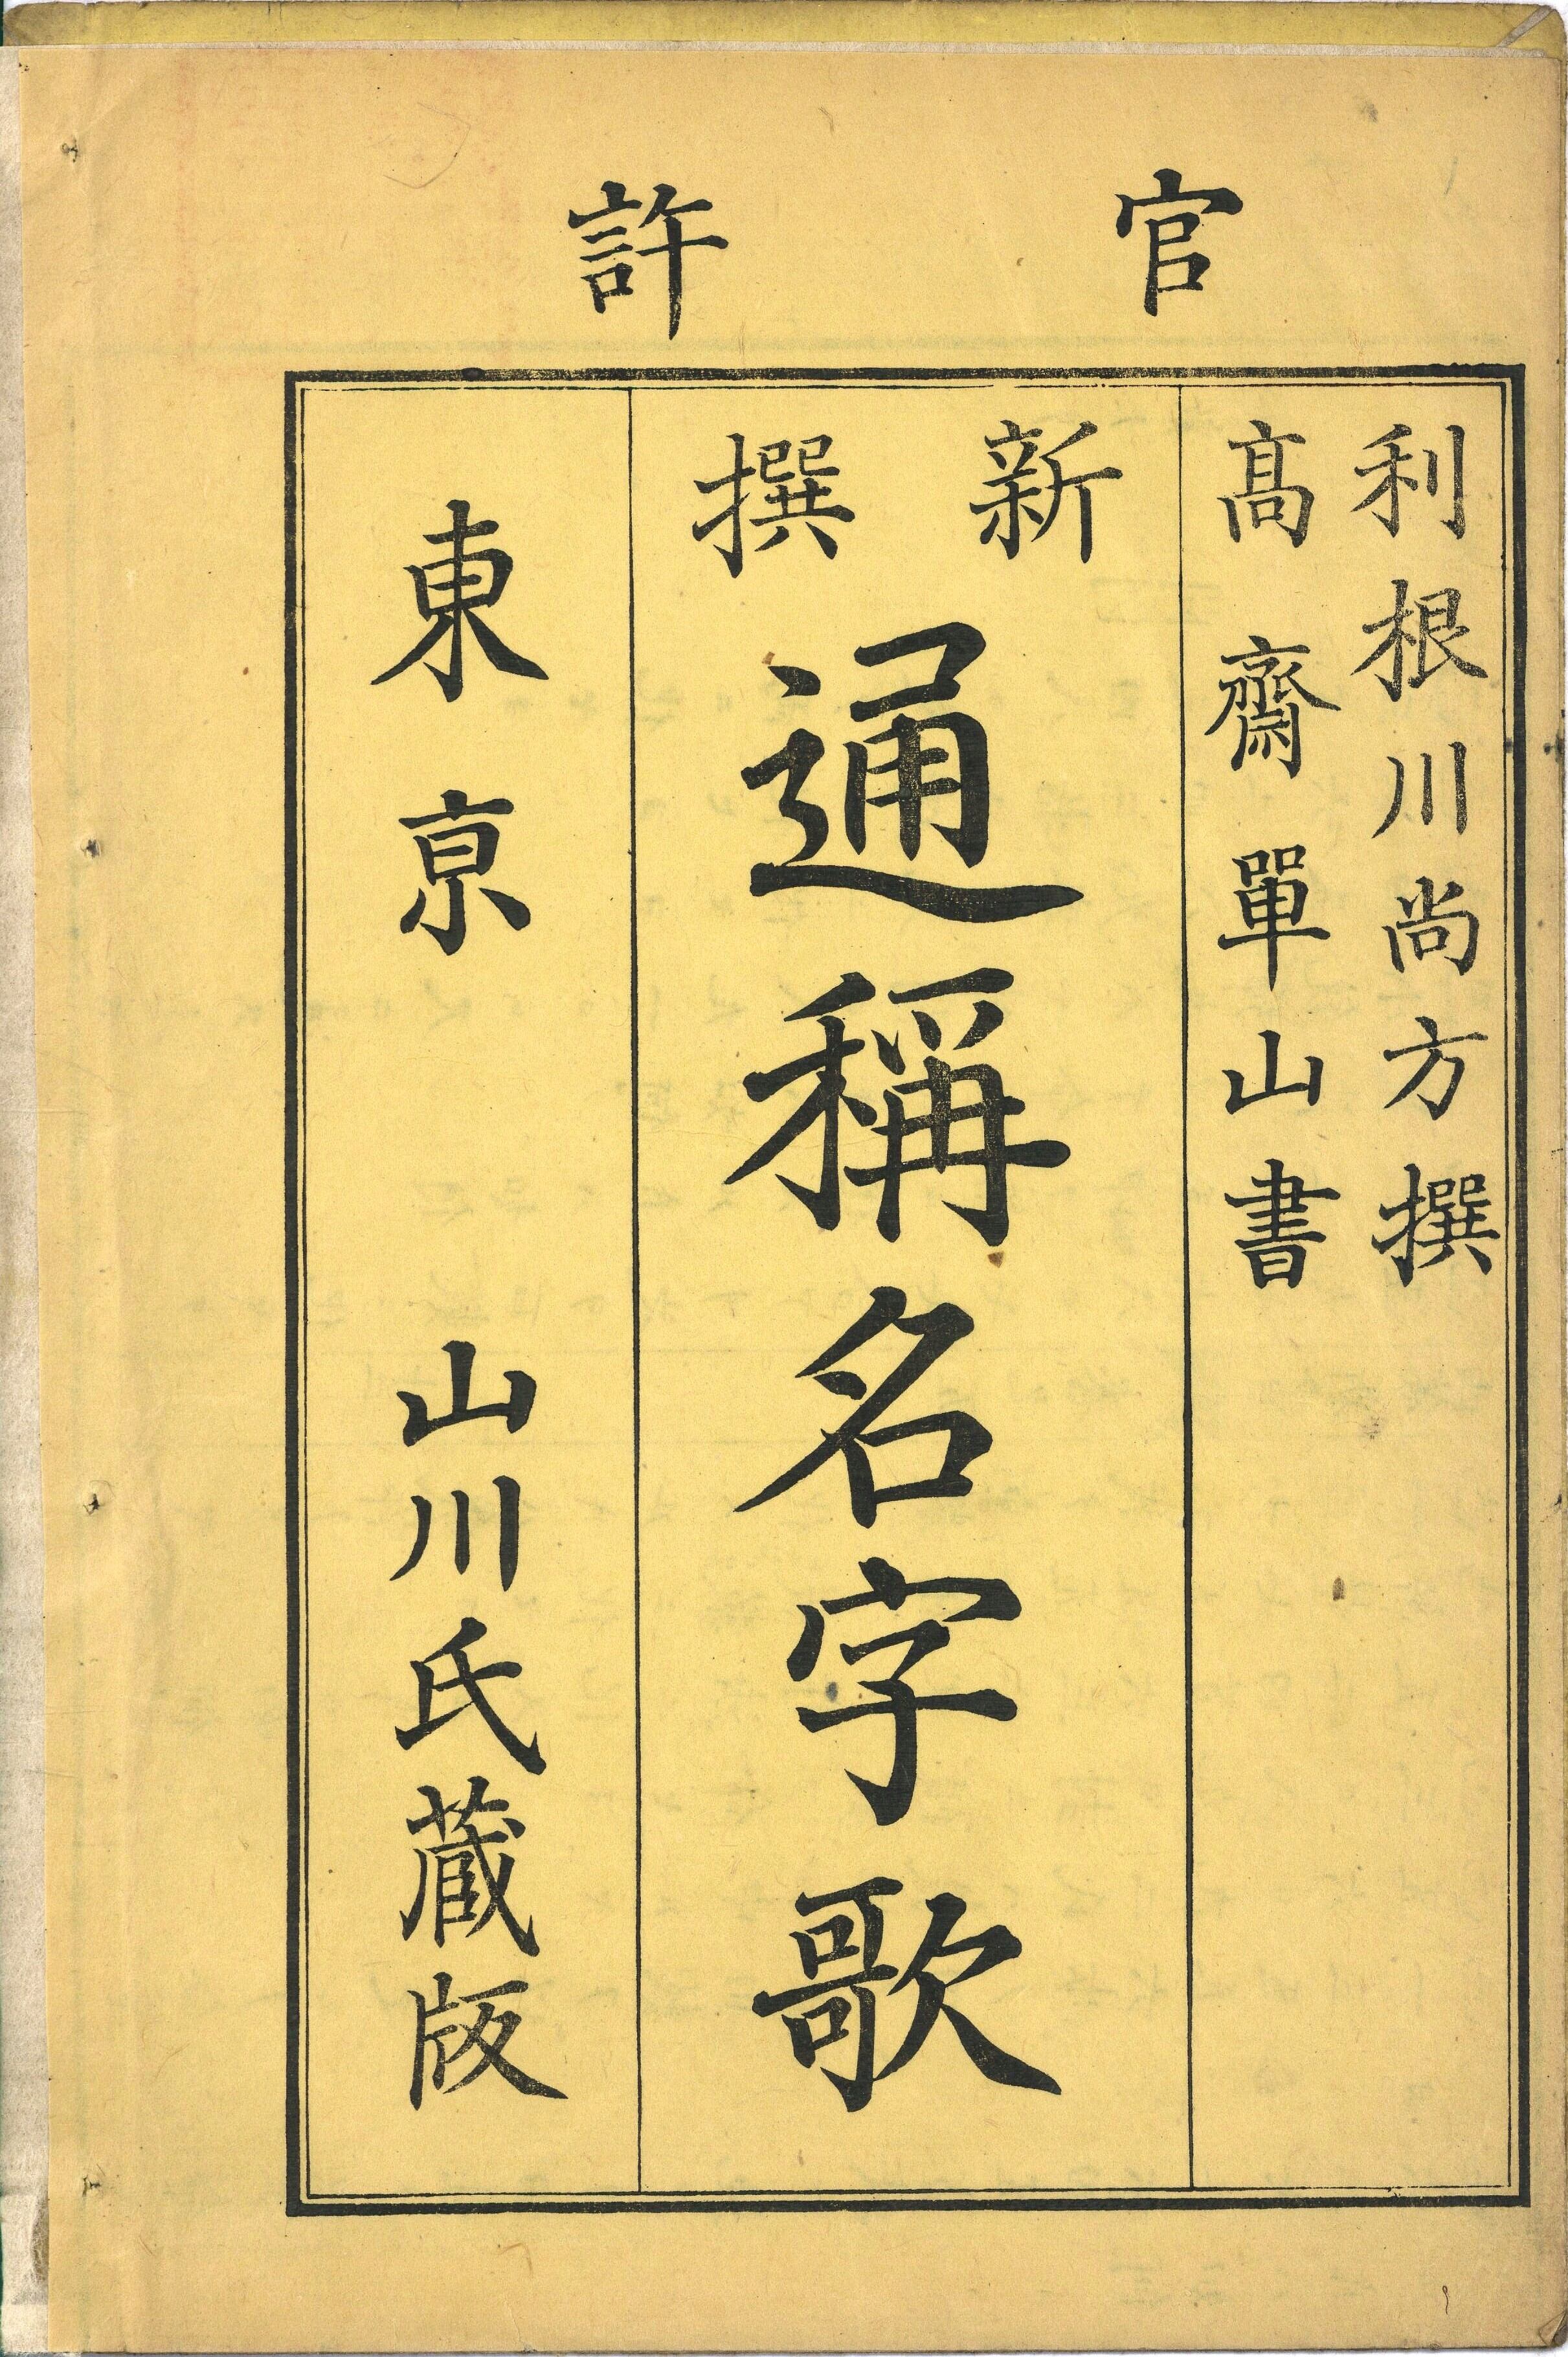 官許
利根川尚方撰
髙齋單山書
新撰
通稱名字歌
東亰　山川氏蔵版